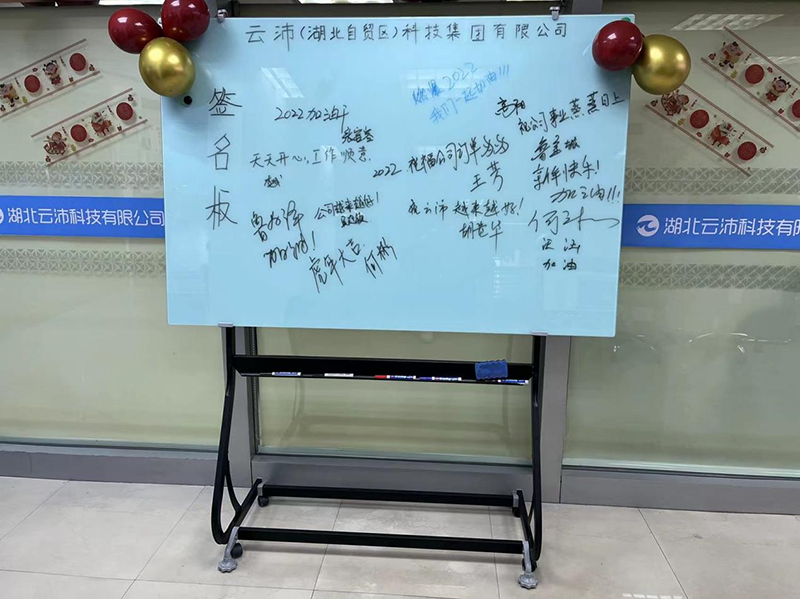 云沛(湖北自贸区)科技集团有限公司
签名板
2022加油干
天天开心,工作顺意
公司越来越好!
加油!
虎年大吉
何彬
燃爆2022
我们一起加油!!!
2022 祝福公司订单多多
王芳
祝云沛越来越好!
胡艺华
祝公司事业蒸蒸日上
新年快乐!
加油!!!
汪涵
加油
湖北云沛科技有限公司
湖北云沛科技有限